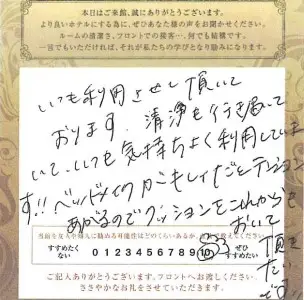 本日はご来館、誠にありがとうございます。
より良いホテルにする為に、ぜひあなた様の声をお聞かせください。
ルームの清潔さ、フロントでの接客…、何でも結構です。
一言でもいただければ、それが私たちの学びとなり励みになります。
いつも利用させて頂いて
おります。清浄も行き届いて
いて、いつも気持ちよく利用していま
す!!ベッドメイクがキレイだとテンション
あがるのでクッションをこれからも
おいて
頂き
たいです
すすめたく
ない
0 1 2 3 4 5 6 7 8 9 10
ぜひ
すすめたい
ご記入ありがとうございます。フロントへお渡しください。
ささやかなお礼をさせていただきます。